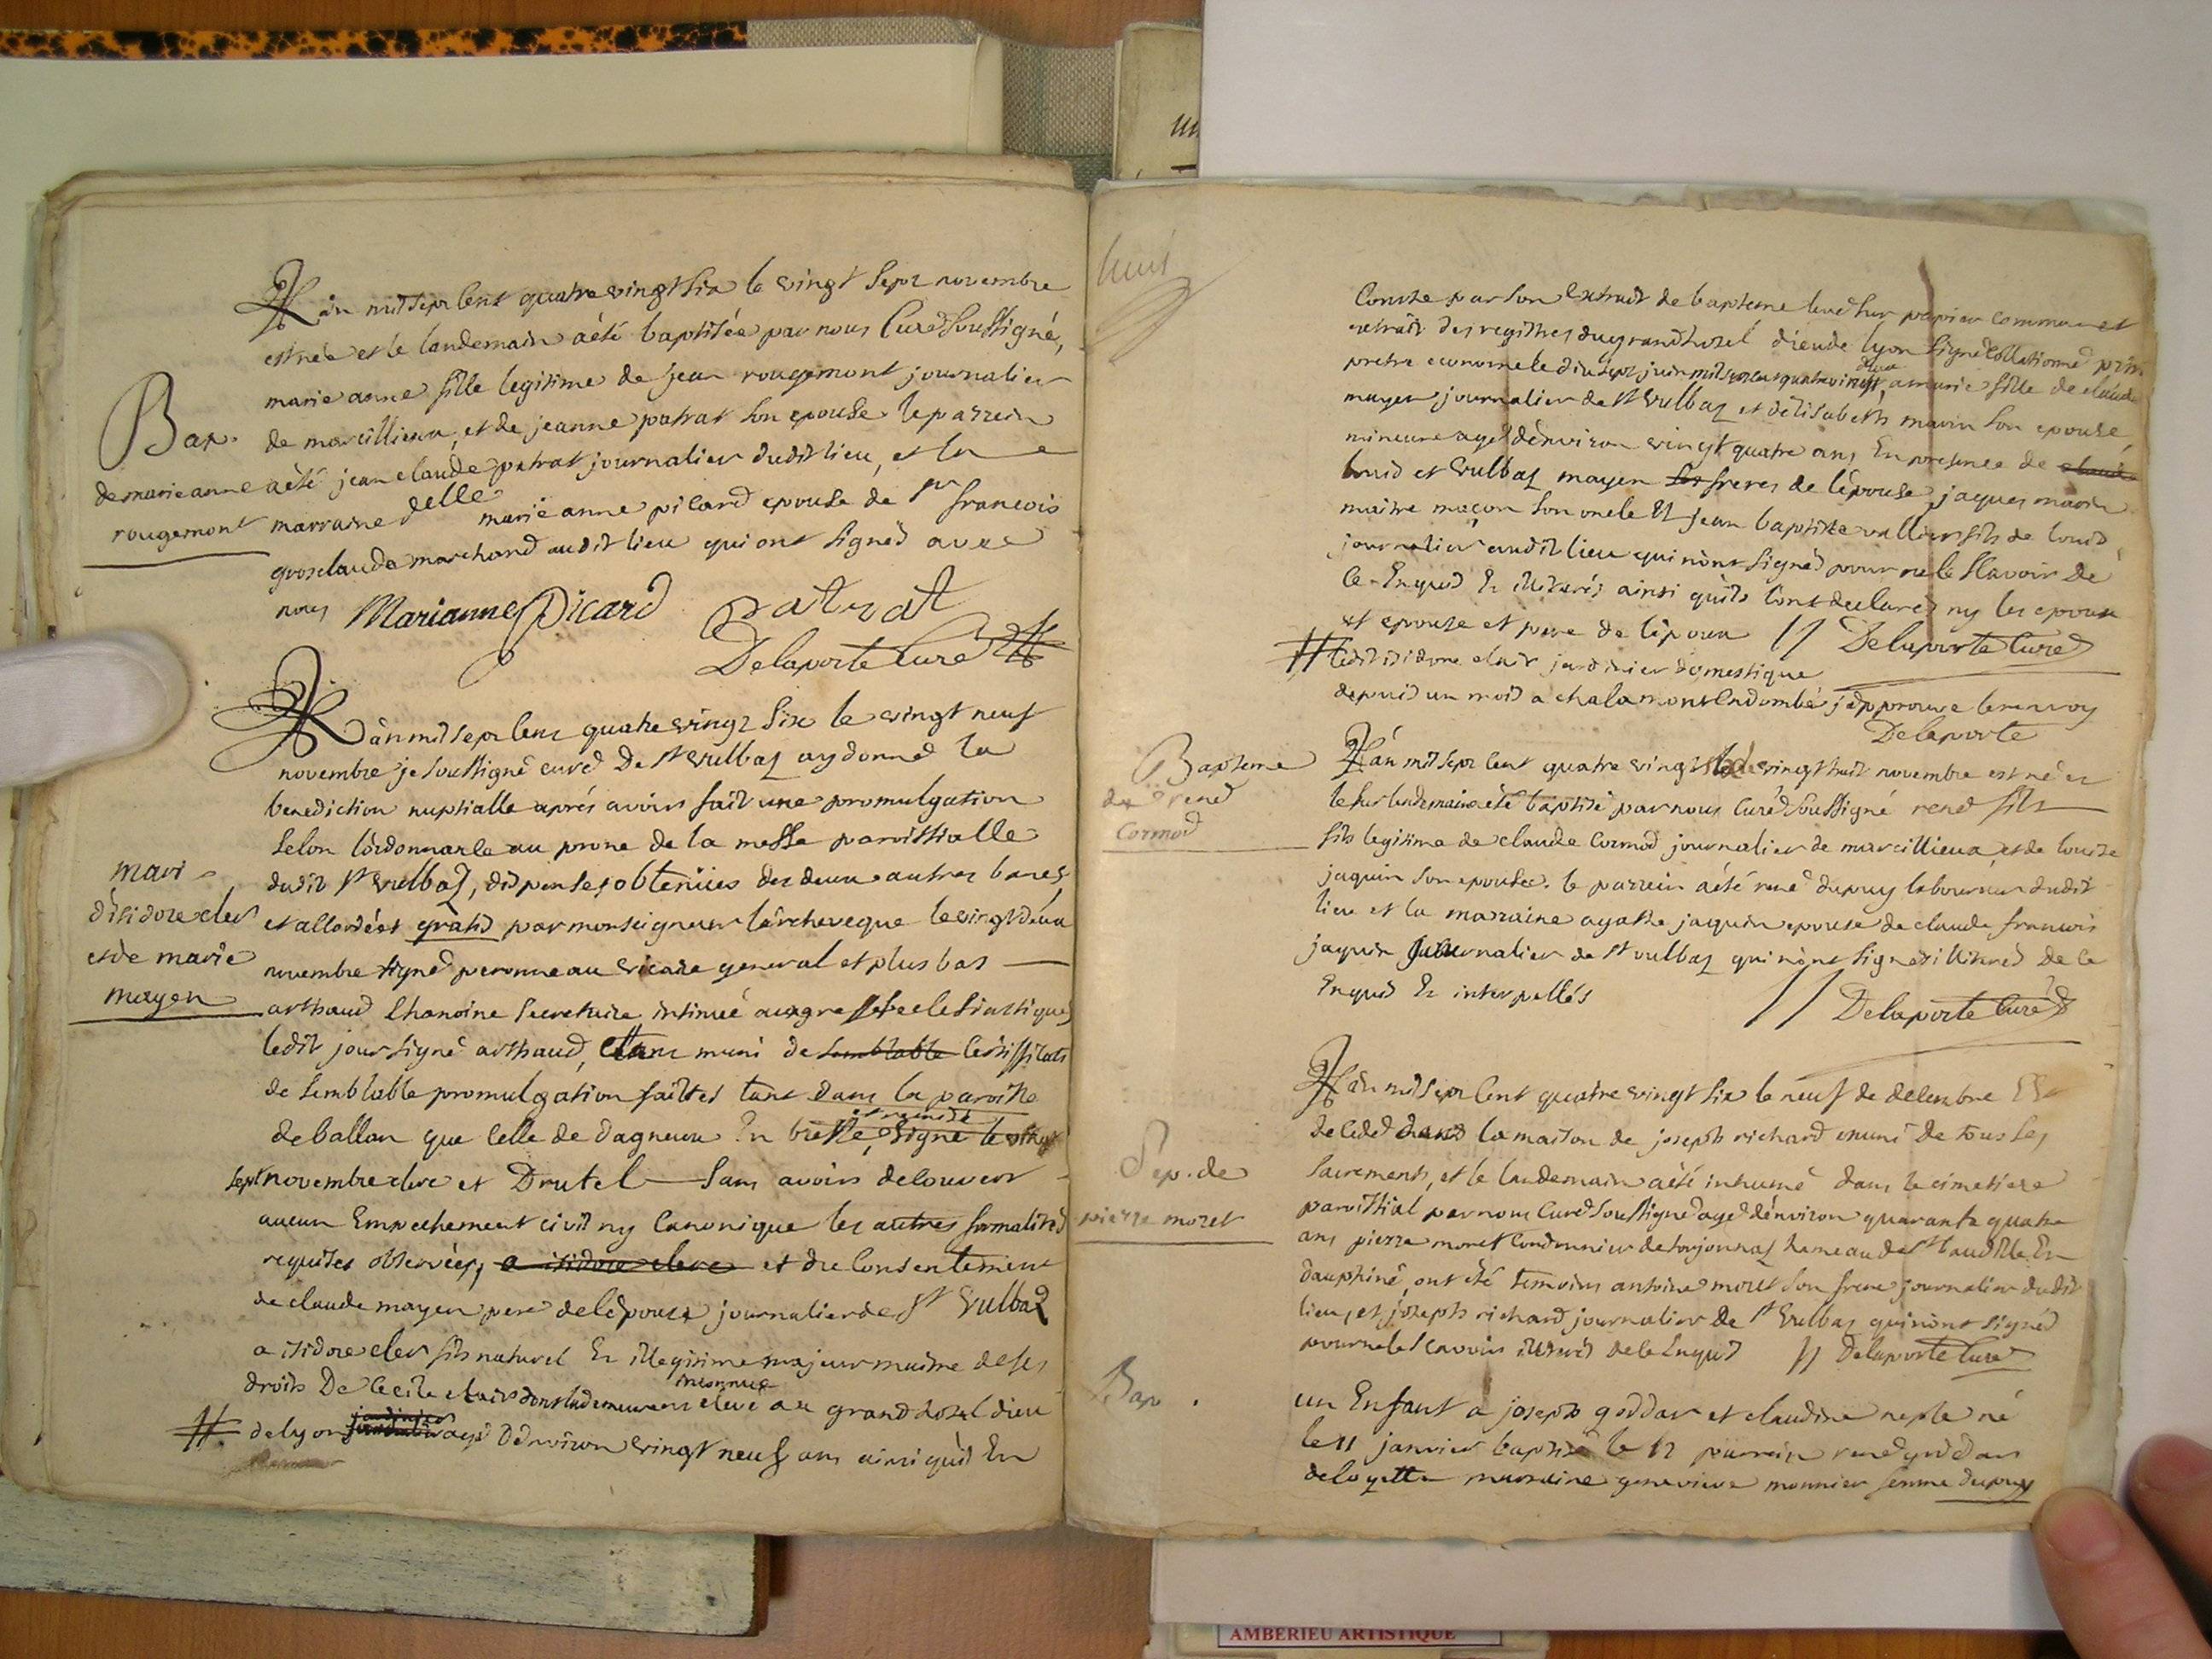 L'an mil sept cent quatre vingt six le vingt sept novembre
est née et le landemain a été baptisée par nous Curé Soussigné,
marie anne fille legitime de jean rougemont journalier
Bap.
de marcillieux, et de jeanne patrat son epouse le parrein
de marie anne
a été jean claude patrat journalier dudit lieu, et la
rougemont
marraine delle marie anne picard epouse de sr francois
grosclaude marchand audit lieu qui ont signé avec
nous Marianne Picard Patrat
Delaporte Curé
L'an mil sept cens quatre vingt six le vingt neuf
novembre je soussigné curé de st vulbas ay donné la
benediction nuptialle aprés avoir fait une promulgation
selon l'ordonnance au prone de la messe paroissialle
mari
dudit st vulbas, dispenses obtenües des deux autres bancs
d'isidore clerc
et accordées gratis par monseigneur l'archeveque le vingt deux
et de marie
novembre signé peronneau vicaire general et plus bas
mayen
arthaud Chanoine secretaire insinué au greffe ecclesiastique
ledit jour signé arthaud, etant muni de semblable certifficats
de semblable promulgation faittes tant dans la paroisse
de ballan que celle de dagneux en bresse, et remise signé le vingt
sept novembre clerc et Drutel sans avoir decouvert
aucun Empechement civil ny Canonique les autres formalités
requises observées, a isidore clerc et du Consentement
de claude mayen pere de l'epouse journalier de st vulbas
a isidore clerc fils naturel et illegitime majeur maitre de ses
droits De Cecile clair dont la demeure inconnue eleve au grand hotel dieu
# de lyon jardinier agé d'environ vingt neuf ans ainsi qu'il En
huit
Conste par son Extrait de bapteme levé sur papier commun et
extrait des registres du grand hotel dieu de lyon signé Collationné
pretre econome le dix sept juin mil sept cent quatre vingt deux, a marie fille de claude
mayen journalier de st vulbas et d'elisabeth marin son epouse,
mineure agée d'environ vingt quatre ans En presence de claude
louis et vulbas mayen ses freres de l'epouse, jaques marin
maitre maçon son oncle Et jean baptiste vallier fils de louis
journalier audit lieu qui n'ont signé pour ne le scavoir de
ce Enquis Et illiterés ainsi qu'ils l'ont declaré ny les epoux
et epouse et pere de l'epoux // Delaporte Curé
# ledit isidore clair jardinier domestique
depuis un mois a chalamont En dombe j'approuve le renvoy
Delaporte
Bapteme
L'an mil sept cent quatre vingt six le vingt huit novembre est né et
de rené
le landemain a été baptisé par nous Curé Soussigné rené fils
Cormod
fils legitime de claude Cormod journalier de marcillieux, et de louise
jaquin son epouse. le parrein a été rené dupuy laboureur dudit
lieu et la maraine agathe jaquin epouse de claude francois
jaquin journalier de st vulbas qui n'ont signé illiterés De ce
Enquis Et interpellés // Delaporte Curé
L'an mil sept cent quatre vingt six le neuf de decembre Est
decedé dans la maison de joseph richard muni de tous les
Sep. de
sacrements, et le landemain a été inhumé dans le cimetiere
pierre moret
paroissial par nous Curé Soussigné agé d'environ quarante quatre
ans pierre moret Cordonnier de hameau de st En
dauphiné, ont été temoins antoine moret son frere journalier dudit
lieu, et joseph richard journalier de st vulbas qui n'ont signé
pour ne le scavoir illiteré de ce Enquis // Delaporte Curé
Bap.
un Enfant a joseph goddar et claudine neple né
le 11 janvier baptisé le 12 parrein rené goddar
de loyette marraine genevieve monnier femme dupuy
AMBERIEU ARTISTIQUE